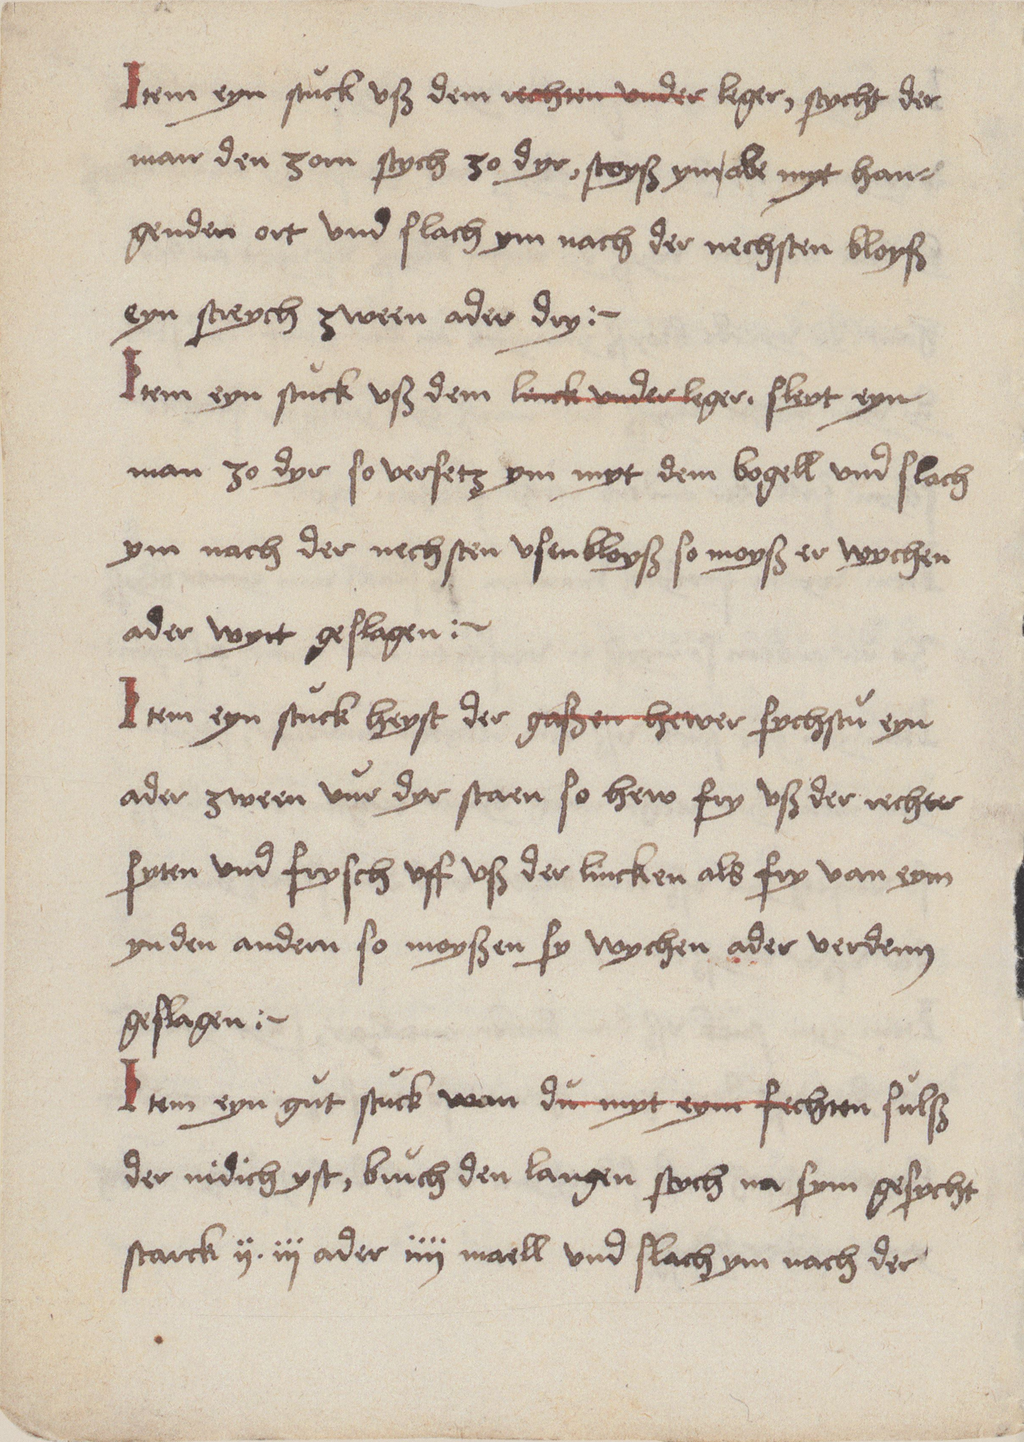 Item eyn stuck vß dem rechten vnder leger, stycht der
man den zorn stych zo dyr, stoyß ym abe myt han-
genden ort vnd slach ym nach der nechsten bloyß
eyn streych zween ader dry :~
Item eyn stuck vß dem linck vnder leger. sleyt eyn
man zo dyr so versetz ym myt dem bogell vnd slach
ym nach der nechsten vsenbloyß so moyß er wychen
ader wyrt geslagen :~
Item eyn stuck heyst der gaßen hewer sychstu eyn
ader zween vur dyr staen so hew fry vß der rechter
syten vnd frysch vff vß der lincken als fry van eym
yn den andern so moyßen sy wychen ader verdenn
geslagen :~
Item eyn gut stuck wan du myt eym fechten sulß
der nidich yst, bruch den langen stych na sym gesycht
starck ij. iij ader iiij maell vnd slach ym nach der